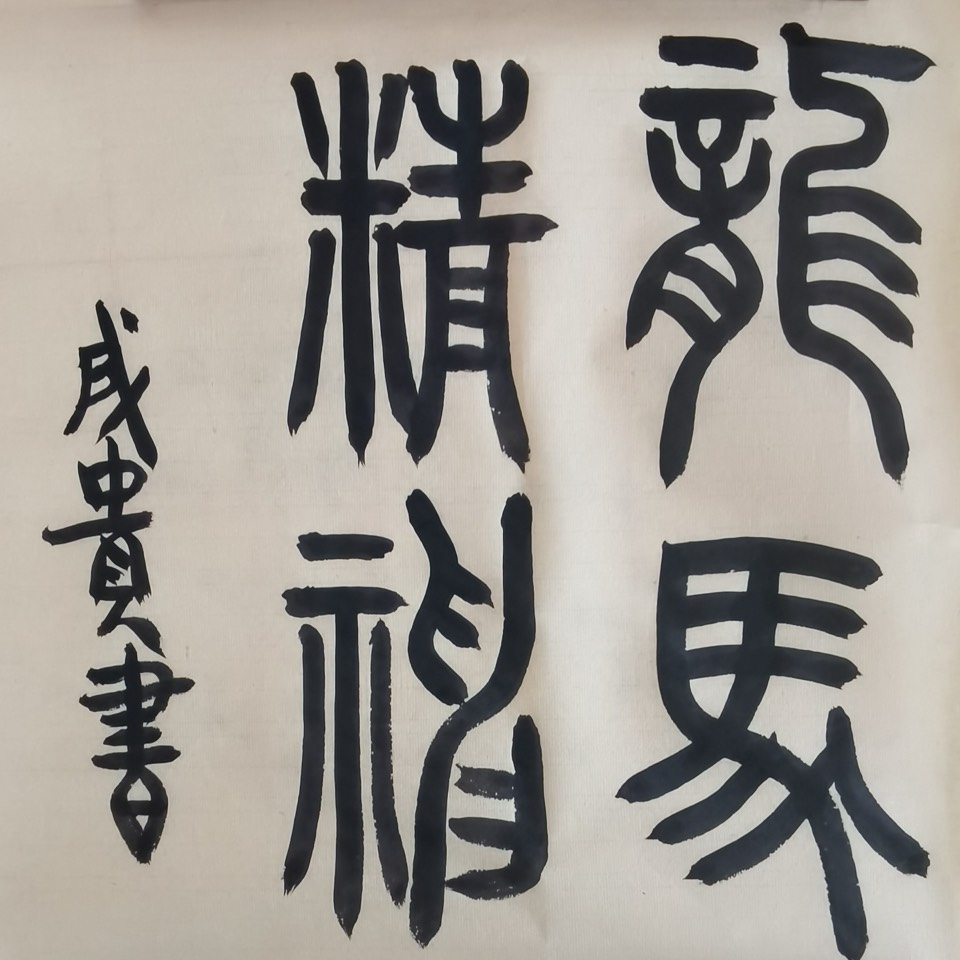 龍馬
精神
成貴書